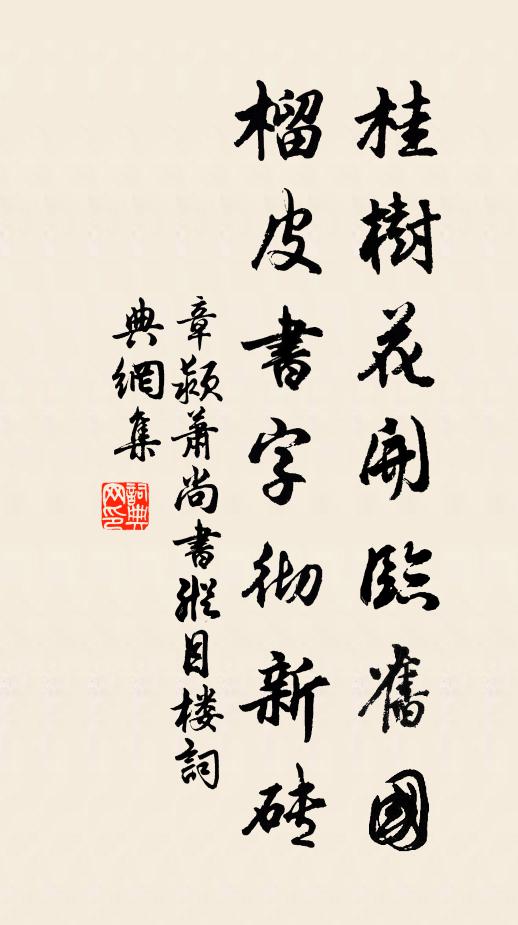 桂樹花開臨舊國
榴皮書字徹新磚
章颍蕭尚書縱目楼詞
典網集
詞典網印